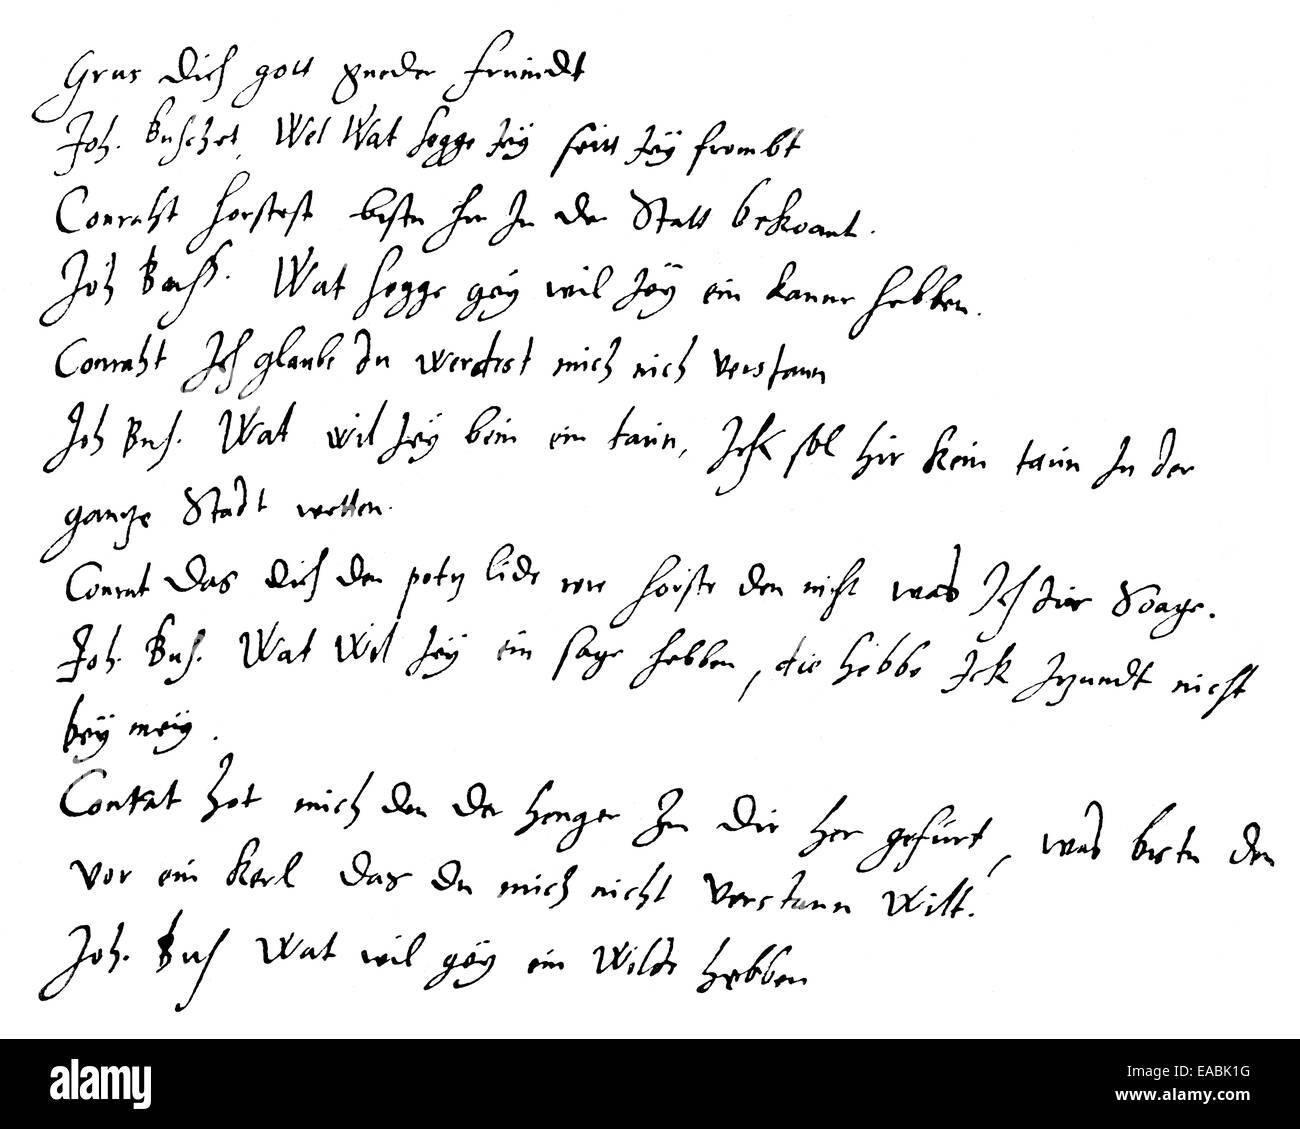 Grus dich gott gueder freindt
Joh. Buschet, Wel Wat segge Jey seitt Jey frombt
Conraht horstest bistu hir In der Statt bekvant.
Joh Busch. Wat segge gey wil Jey ein kanne hebben.
Conraht Ich glaube du werdest mich nich verstann
Joh Bus. Wat wil Jey bein ein tarin, Ick sol hir kein tarin In der
gantze Stadt wetten.
Conrat das dich den potz lide wie horste den nicht was Ich dir Soage.
Joh. Bus. Wat Wil Jey ein sage hebben, die hebbe Ick Itzundt nicht
bey mey.
Conrat hot mich den der henger zu dir her gefürt, was bistu den
vor ein kerl das du mich nicht verstann wilt.
Joh. Bus Wat wil gey ein Wilde hebben
alamy
alamy
Image ID: EABK1G
www.alamy.com